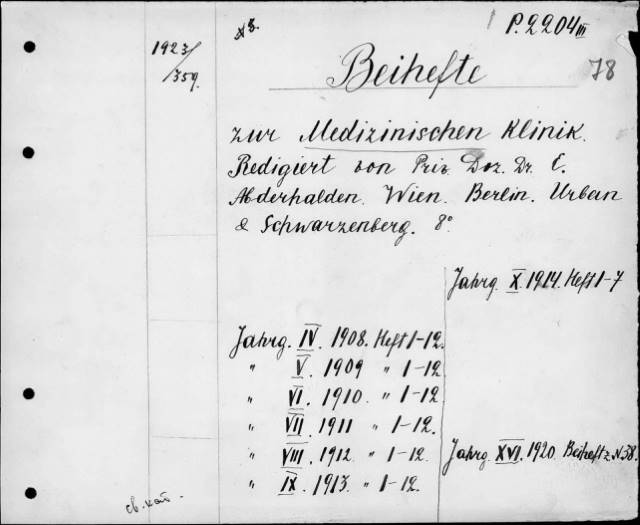 P. 2204 III
78
1923/359.
Beihefte
zur Medizinischen Klinik.
Redigiert von Priv. Doz. Dr. E.
Abderhalden. Wien. Berlin. Urban
& Schwarzenberg. 8°
Jahrg. X. 1914. Heft 1-7
Jahrg. IV. 1908. Heft 1-12.
" V. 1909 " 1-12.
" VI. 1910. " 1-12.
" VII. 1911 " 1-12.
" VIII. 1912 " 1-12
" IX. 1913. " 1-12.
Jahrg. XVI. 1920. Beiheft z. N. 38.
св. кат.